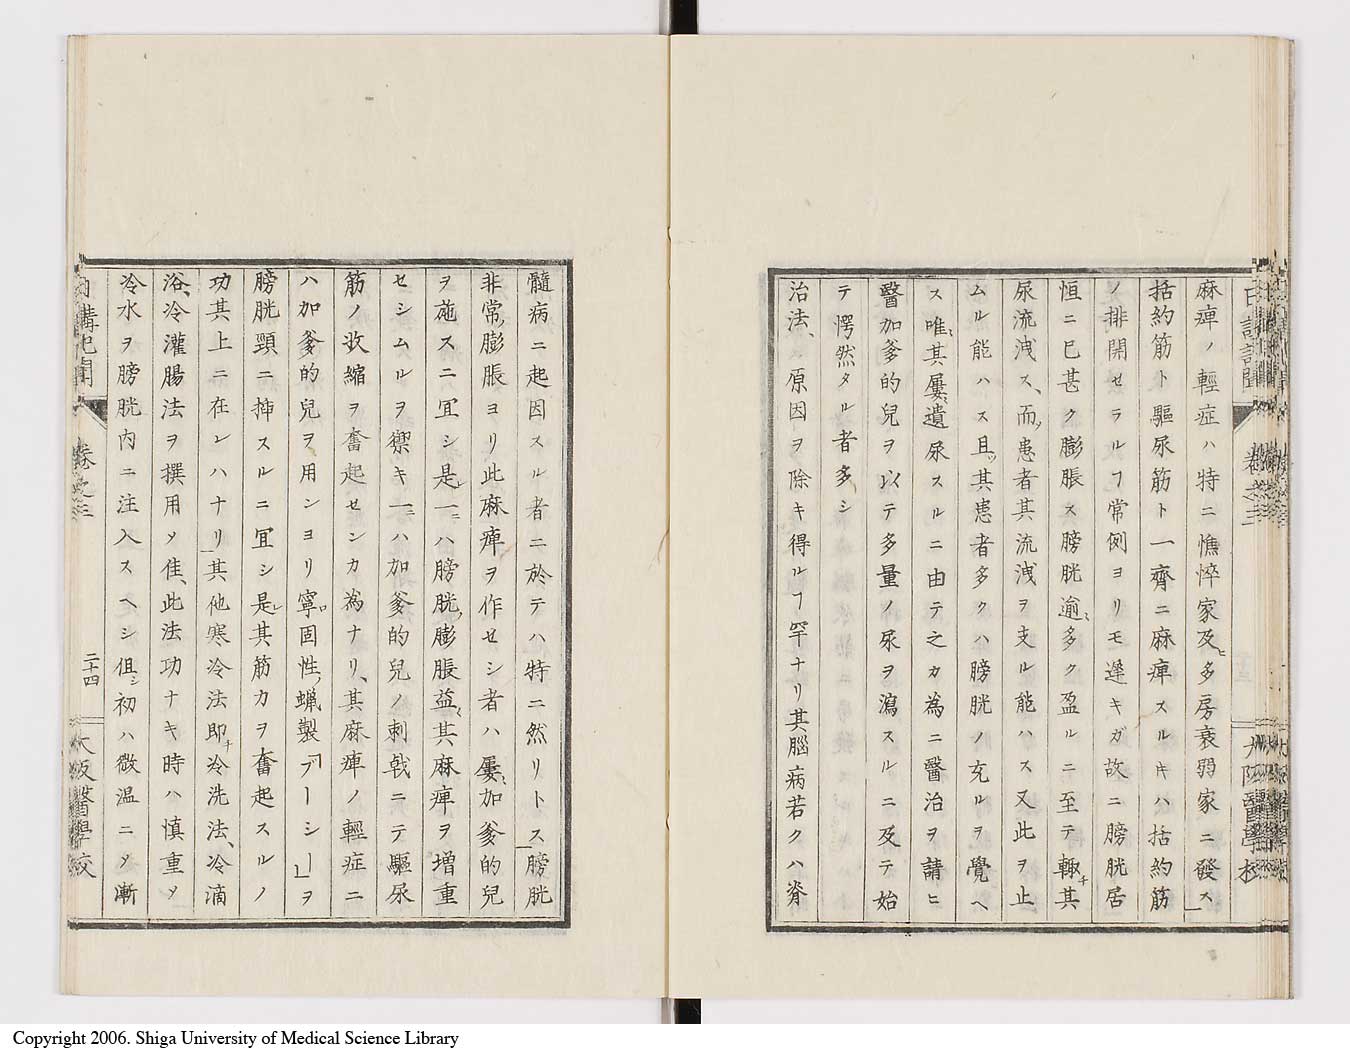 麻痺ノ輕症ハ特ニ憔悴家及ヒ多房衰弱家ニ發ス」
括約筋ト驅尿筋ト一齊ニ麻痺スルキハ括約筋
ノ排開セラルヿ常例ヨリモ遅キガ故ニ膀胱居
恒ニ已甚ク膨脹ス膀胱逾〻多ク盈ルニ至テ輙チ其
尿流洩ス、而ッ患者其流洩ヲ支ル能ハス又此ヲ止
ムル能ハス且ッ其患者多クハ膀胱ノ充ルヲ覺ヘ
ス唯〻其屢〻遺尿スルニ由テ之カ為ニ醫治ヲ請ヒ
醫加爹的兒ヲ以テ多量ノ尿ヲ瀉スルニ及テ始
テ愕然タル者多シ
治法、原因ヲ除キ得ルヿ罕ナリ其腦病若クハ脊
髓病ニ起因スル者ニ於テハ特ニ然リトス」膀胱
非常ノ膨脹ヨリ此麻痺ヲ作セシ者ハ屢〻加爹的兒
ヲ施スニ冝シ是レ一ニハ膀胱ノ膨脹益〻其麻痺ヲ増重
セシムルヲ禦キ一ニハ加爹的兒ノ刺戟ニテ驅尿
筋ノ收縮ヲ奮起センカ為ナリ、其麻痺ノ輕症ニ
ハ加爹的兒ヲ用ンヨリ寧ロ固性ノ蝋製「ブーシー」ヲ
膀胱頸ニ挿スルニ冝シ是レ其筋力ヲ奮起スルノ
功其上ニ在レハナリ」其他寒冷法即チ冷洗法、冷滴
浴、冷灌腸法ヲ撰用メ佳、此法功ナキ時ハ慎重メ
冷水ヲ膀胱内ニ注入スヘシ但シ初ハ微温ニメ漸
卷之三
二十四
大阪醫學校
Copyright 2006. Shiga University of Medical Science Library